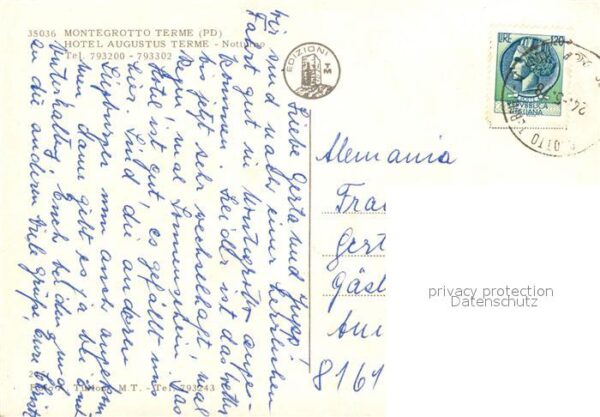 35036 MONTEGROTTO TERME (PD)
HOTEL AUGUSTUS TERME - Notturno
Tel. 793200 - 793302
EDIZIONI
TM
LIRE 120
REPUBBLICA
ITALIANA
Liebe Gerta und Jupp!
Wir sind nach einer herrlichen
Fahrt gut in Montegrotto ange-
kommen. Leider ist das Wetter
bis jetzt sehr wechselhaft, mal
Regen mal Sonnenschein. Das
Hotel ist gut, es gefällt uns
hier. Sind die anderen
Siegburger nun auch angekom
men. Dann gibt es ja die beste
Unterhaltung. Euch beiden und
an die anderen viele Grüße, eure
Alemania
Fra
Gert
Gäst
Au
8161
privacy protection
Datenschutz
M.T. - Tel. 793243